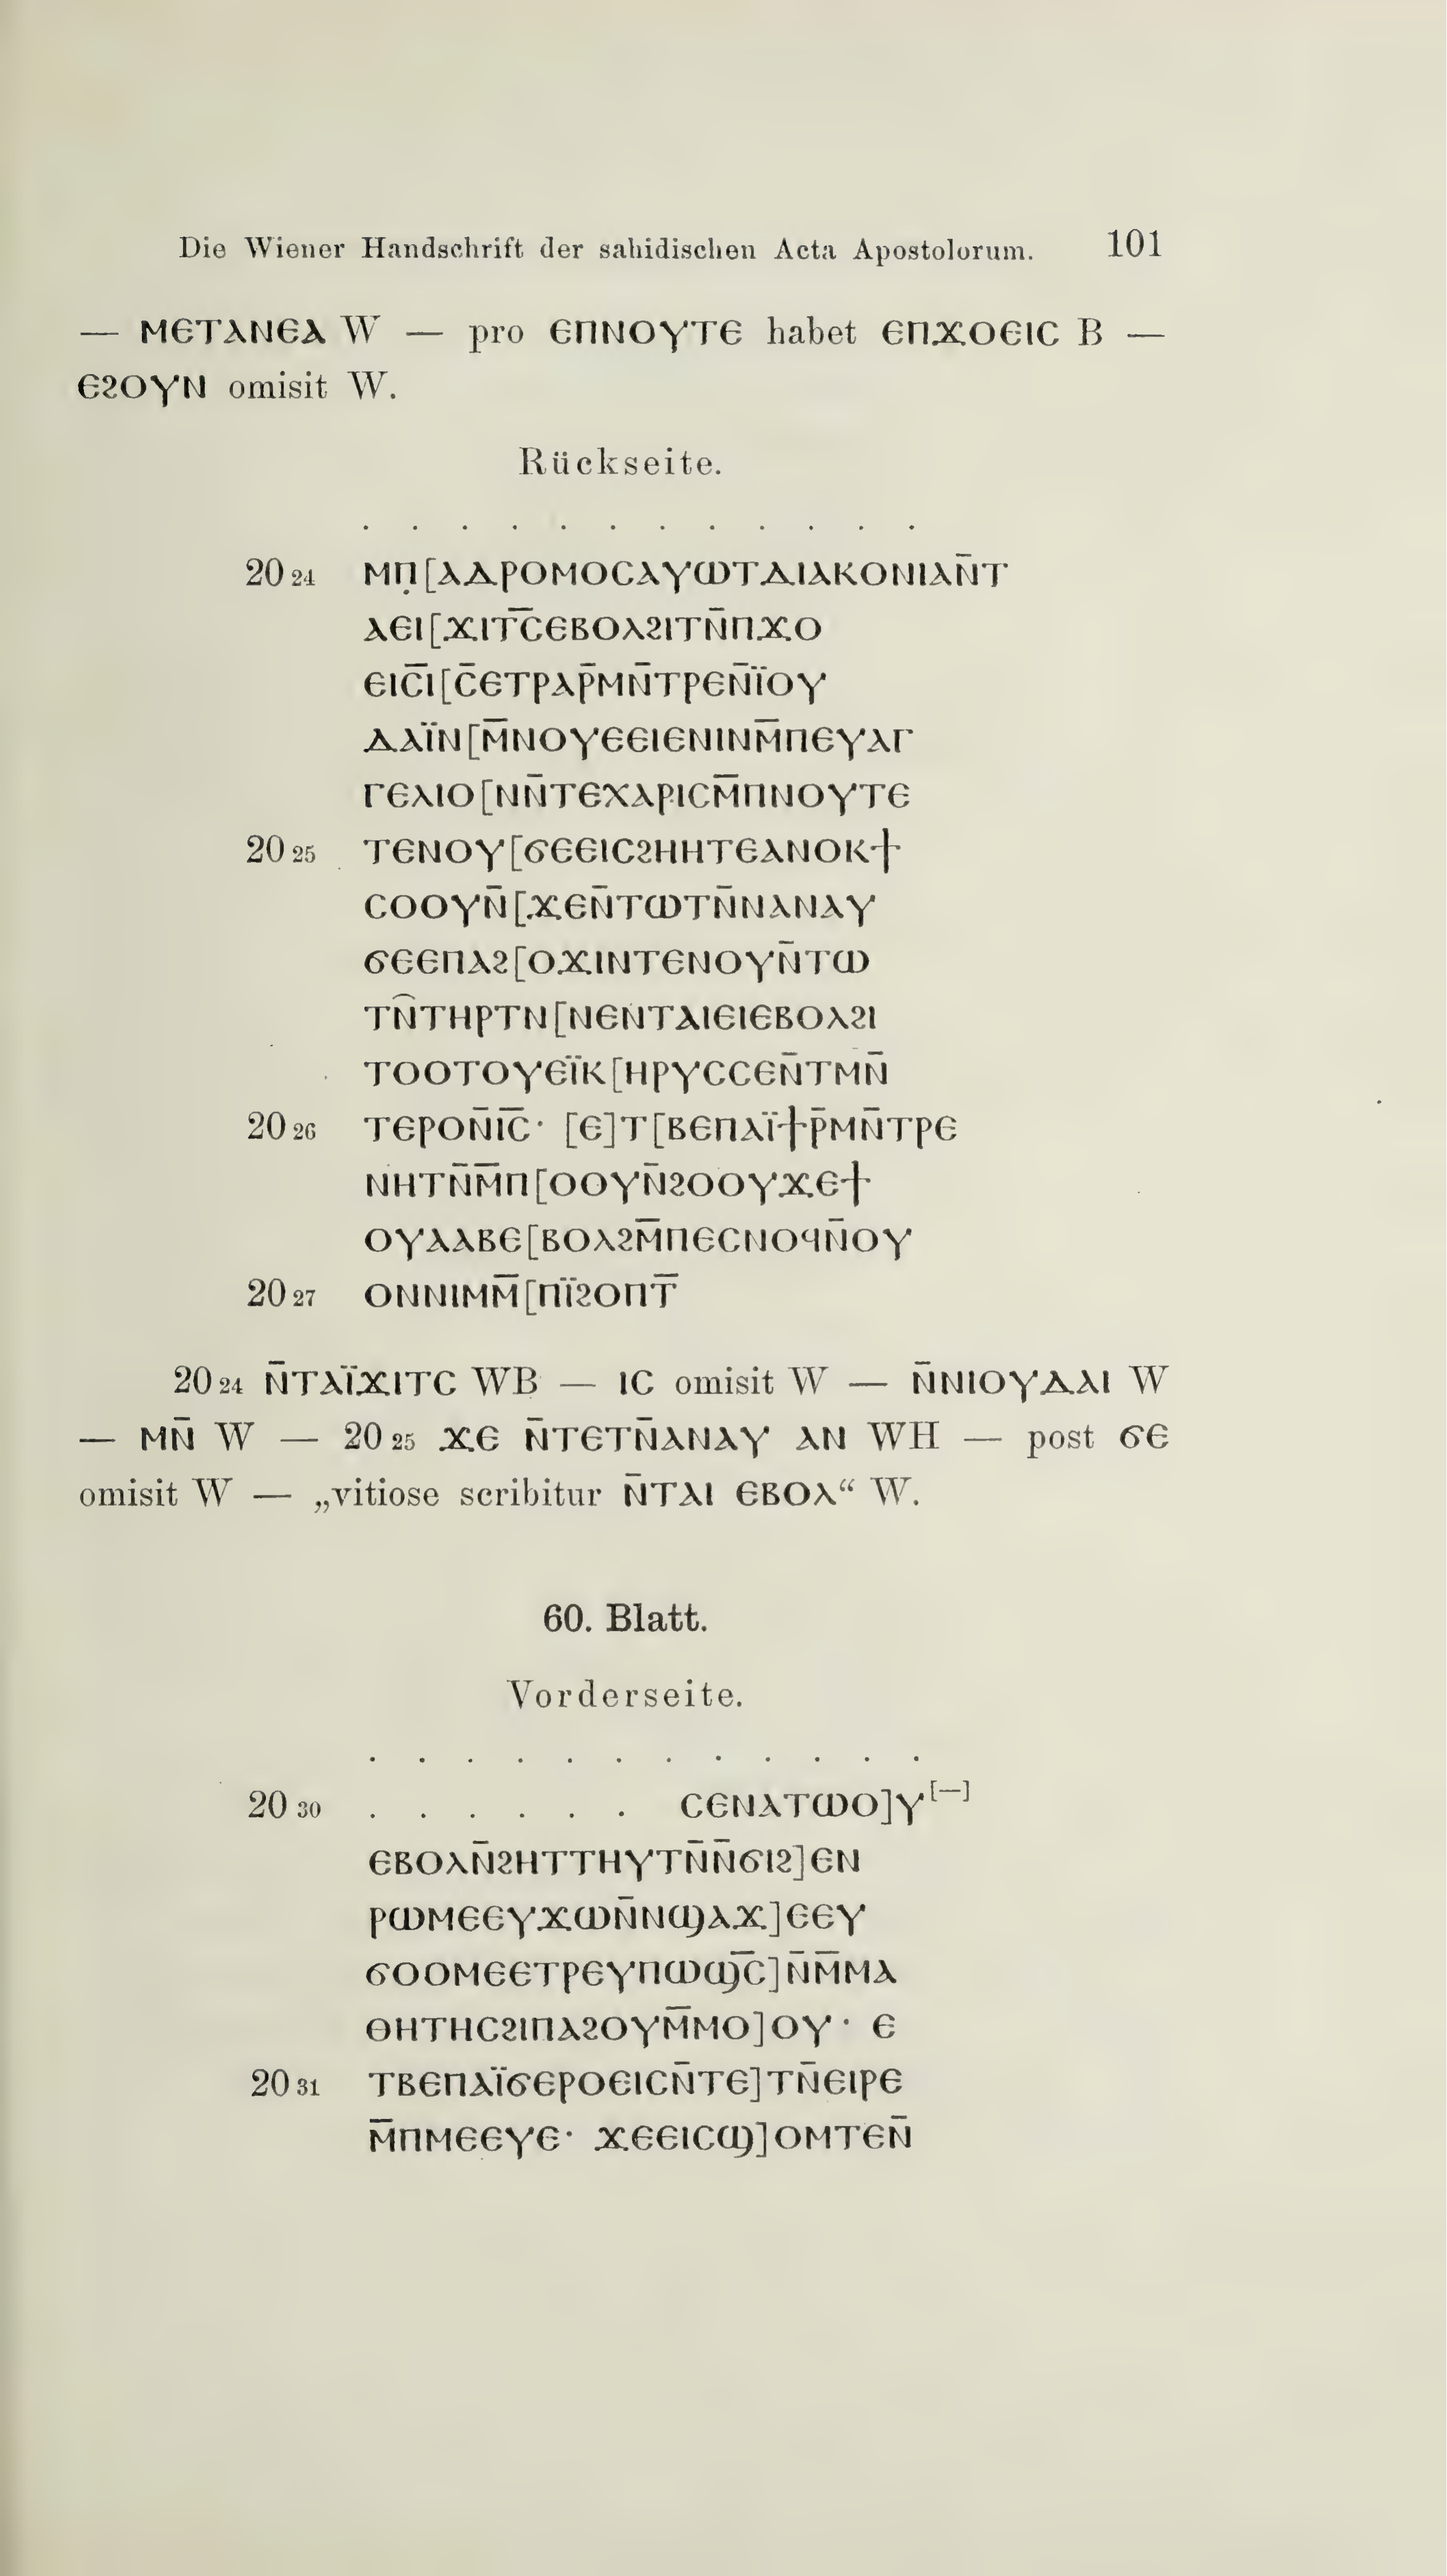 Die Wiener Handschrift der sahidischen Acta Apostolorum. 101
— ⲙⲉⲧⲁⲛⲉⲁ W — pro ⲉⲡⲛⲟⲩⲧⲉ habet ⲉⲡϫⲟⲉⲓⲥ B —
ⲉϩⲟⲩⲛ omisit W.
Rückseite.
. . . . . . . . . . . .
20 24 ⲙⲡ̣[ⲁⲇⲣⲟⲙⲟⲥⲁⲩⲱⲧⲇⲓⲁⲕⲟⲛⲓⲁⲛ̄ⲧ
ⲁⲉⲓ[ϫⲓⲧⲥ̄ⲉⲃⲟⲗϩⲓⲧⲛ̄ⲡϫⲟ
ⲉⲓⲥ̄ⲓ[ⲥ̄ⲉⲧⲣⲁⲣ̄ⲙⲛ̄ⲧⲣⲉⲛ̄ⲓ̈ⲟⲩ
ⲇⲁⲓ̈ⲛ[ⲙ̄ⲛⲟⲩⲉⲉⲓⲉⲛⲓⲛⲙ̄ⲡⲉⲩⲁⲅ
ⲅⲉⲗⲓⲟ[ⲛⲛ̄ⲧⲉⲭⲁⲣⲓⲥⲙ̄ⲡⲛⲟⲩⲧⲉ
20 25 ⲧⲉⲛⲟⲩ[ϭⲉⲉⲓⲥϩⲏⲏⲧⲉⲁⲛⲟⲕϯ
ⲥⲟⲟⲩⲛ̄[ϫⲉⲛ̄ⲧⲱⲧⲛ̄ⲛⲁⲛⲁⲩ
ϭⲉⲉⲡⲁϩ[ⲟϫⲓⲛⲧⲉⲛⲟⲩⲛ̄ⲧⲱ
ⲧⲛ̑ⲧⲏⲣⲧⲛ[ⲛⲉⲛⲧⲁⲓⲉⲓⲉⲃⲟⲗϩⲓ
ⲧⲟⲟⲧⲟⲩⲉⲓ̈ⲕ[ⲏⲣⲩⲥⲥⲉⲛ̄ⲧⲙⲛ̄
20 26 ⲧⲉⲣⲟⲛ̄ⲓ̄ⲥ̄· [ⲉ]ⲧ[ⲃⲉⲡⲁⲓ̈ϯⲣ̄ⲙⲛ̄ⲧⲣⲉ
ⲛⲏⲧⲛ̄ⲙ̄ⲡ[ⲟⲟⲩⲛ̄ϩⲟⲟⲩϫⲉϯ
ⲟⲩⲁⲁⲃⲉ[ⲃⲟⲗϩⲙ̄ⲡⲉⲥⲛⲟϥⲛ̄ⲟⲩ
20 27 ⲟⲛⲛⲓⲙⲙ̄[ⲡⲓ̈ϩⲟⲡⲧ̄
20 24 ⲛ̄ⲧⲁⲓ̈ϫⲓⲧⲥ WB — ⲓⲥ omisit W — ⲛ̄ⲛⲓⲟⲩⲇⲁⲓ W
— ⲙⲛ̄ W — 20 25 ϫⲉ ⲛ̄ⲧⲉⲧⲛ̄ⲁⲛⲁⲩ ⲁⲛ WH — post ϭⲉ
omisit W — „vitiose scribitur ⲛ̄ⲧⲁⲓ ⲉⲃⲟⲗ“ W.
60. Blatt.
Vorderseite.
. . . . . . . . . . . .
20 30 . . . . . . ⲥⲉⲛⲁⲧⲱⲟ]ⲩ[—]
ⲉⲃⲟⲗⲛ̄ϩⲏⲧⲧⲏⲩⲧⲛ̄ⲛ̄ϭⲓϩ]ⲉⲛ
ⲣⲱⲙⲉⲉⲩϫⲱⲛ̄ⲛϣⲁϫ]ⲉⲉⲩ
ϭⲟⲟⲙⲉⲉⲧⲣⲉⲩⲡⲱϣⲥ̄]ⲛ̄ⲙ̄ⲙⲁ
ⲑⲏⲧⲏⲥϩⲓⲡⲁϩⲟⲩⲙ̄ⲙⲟ]ⲟⲩ· ⲉ
20 31 ⲧⲃⲉⲡⲁⲓ̈ϭⲉⲣⲟⲉⲓⲥⲛ̄ⲧⲉ]ⲧⲛ̄ⲉⲓⲣⲉ
ⲙ̄ⲡⲙⲉⲉⲩⲉ· ϫⲉⲉⲓⲥϣ]ⲟⲙⲧⲉⲛ̄